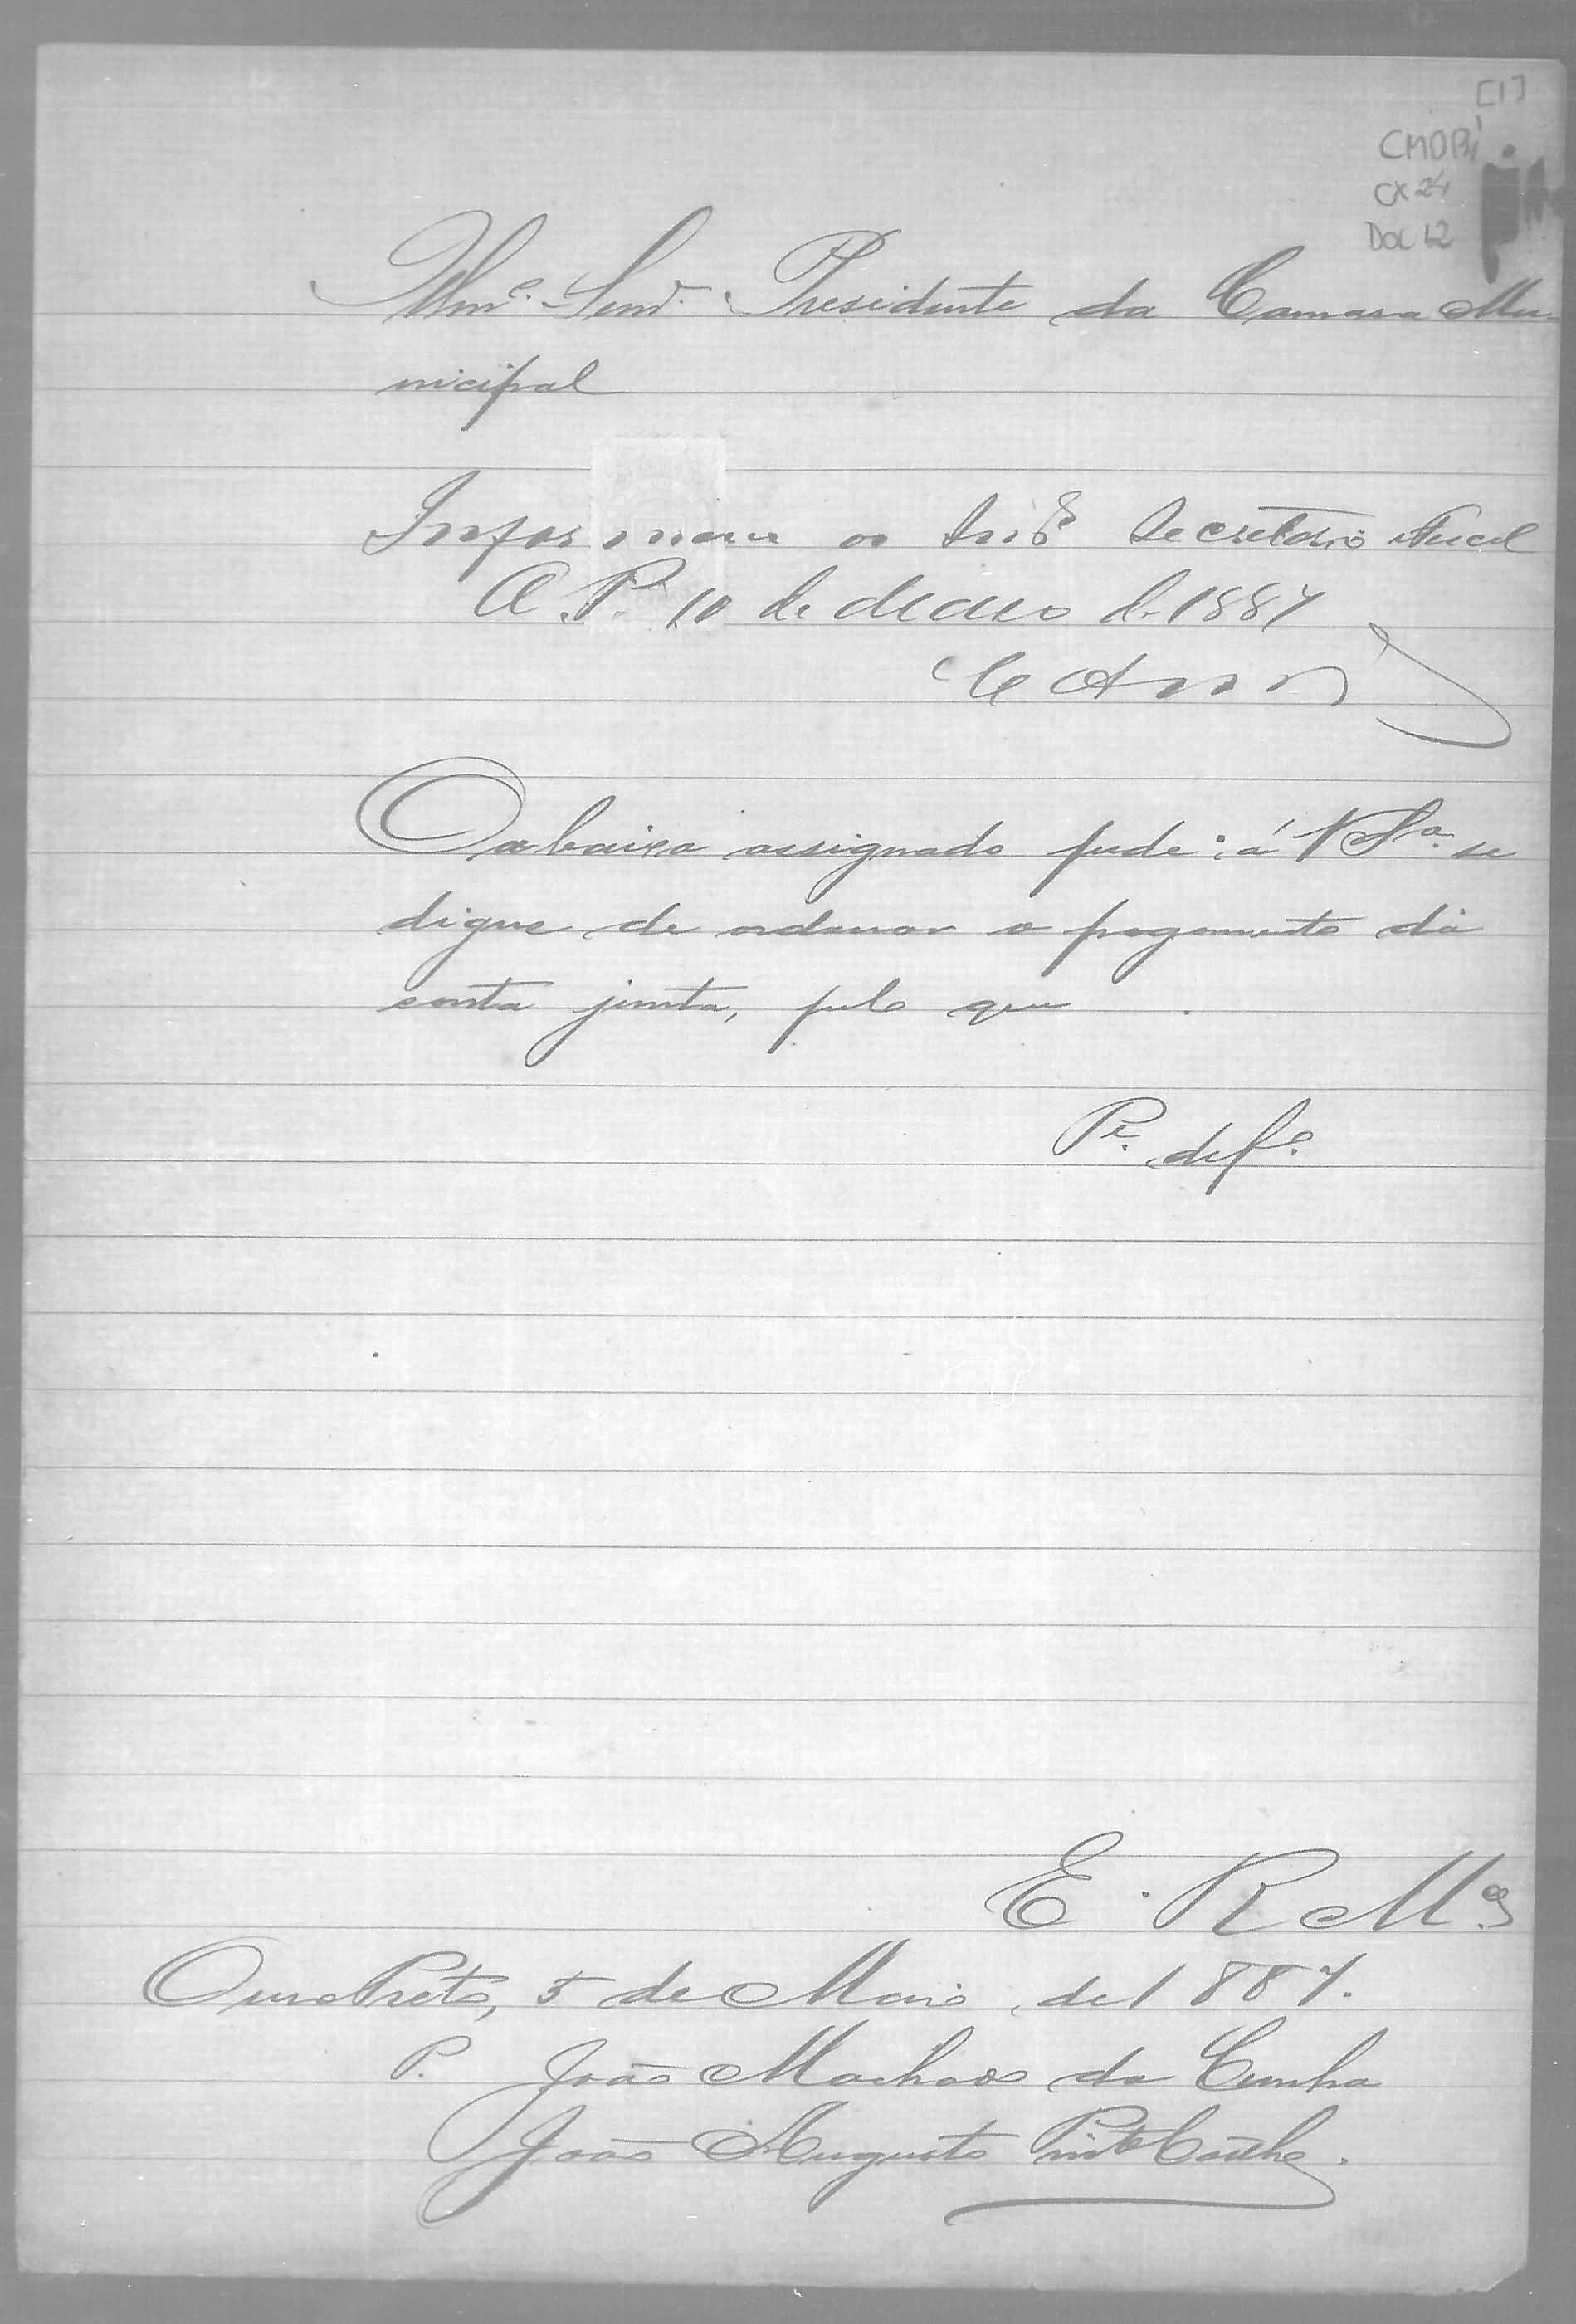 [1]
CMOP
CX 24
Doc 12
Illmo. Senr. Presidente da Camara Mu-
nicipal
Informem os Secretario Fiscal
O. P. 10 de Maio de 1887
O abaixo assignado pede á V Sa. se
digne de ordenar o pagamento da
conta junta, pelo que
Pe. defo.
E. R. Mce
Ouro Preto, 5 de Maio de 1887.
P. João Machado da Cunha
João Augusto Pinto Coelho.